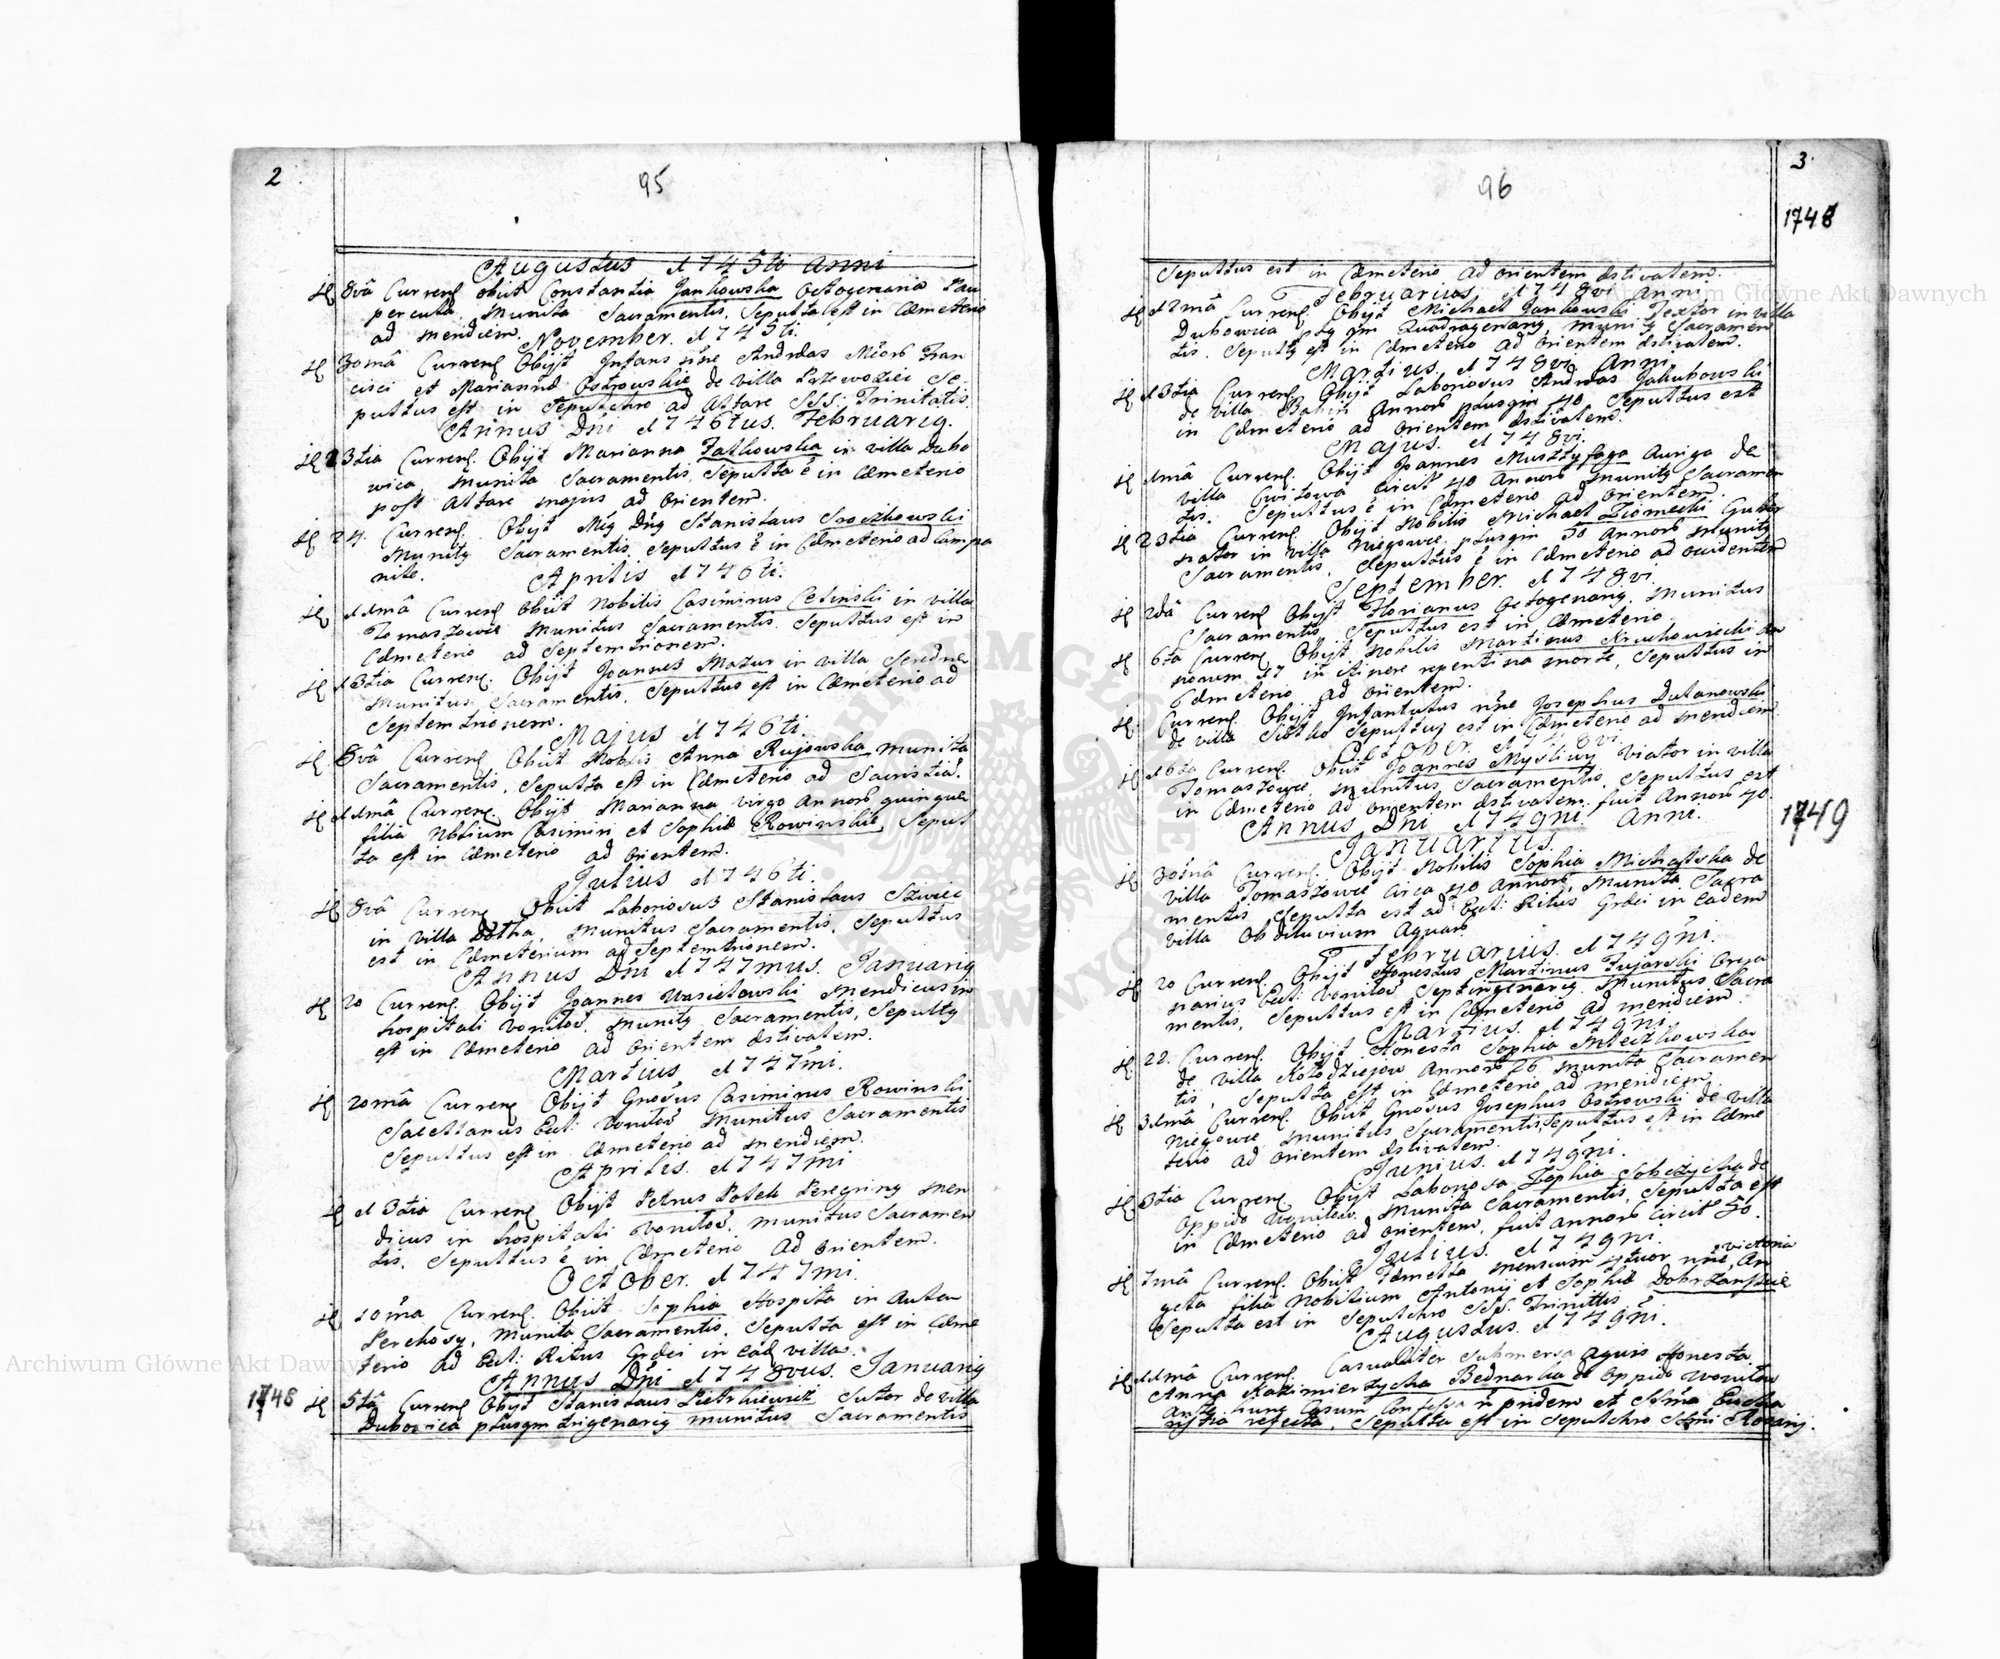 2
95
Augustus 1745ti Anni
8vâ Curren Obiit Constantia Jankowska Octogenaria Pau
percula Munita Sacramentis. Sepulta est in Cæmeterio
ad meridiem. November. 1745ti.
30mâ Curren Obijt Infans nne Andræas Mcorũ Fran
cisci et Mariannæ Ostrowskie de Villa Przewoziec Se
pultus est in Sepulchro ad Altare SSS: Trinitatis.
Annus Dni 1746tus. Februarij.
23tia Curren Obijt Marianna Zatkowska in villa Dubo
wica, Munita Sacramentis, Sepulta ê in Cæmeterio
post Altare majus ad Orientem.
24. Curren. Obijt Stanislaus Sroczkowski
Munitq Sacramentis. Sepultus ê in Cæmeterio ad Campa
nile. Aprilis 1746ti.
11mâ Curren Obiit Nobilis Casimirus Cetinski in villa
Tomaszowce Munitus Sacramentis. Sepultus est in
Cæmeterio ad Septemtrionem.
13tia Curren. Obijt Joannes Mazur in villa Seredne
Munitus Sacramentis. Sepultus est in Cæmeterio ad
Septemtrionem.
Majus 1746ti.
8vâ Curren Obiit Nobilis Anna Rujowska munita
Sacramentis, Sepulta est in Cæmeterio ad Sacristiã.
11mâ Curren. Obijt Marianna virgo Annorũ quinque
filia Nobilium Casimiri et Sophiæ Rowinskie, Sepul
ta est in Cæmeterio ad Orientem.
Julius 1746ti.
8vâ Curren Obiit Laboriosus Stanislaus Szwiec
in villa Dołha, Munitus Sacramentis. Sepultus
est in Cæmeterium ad Septemtrionem.
Annus Dni 1747mus. Januarij
20 Curren. Obijt Joannes Wasielewski Mendicus in
hospitali Voniloũ. Munitq Sacramentis, Sepultq
est in Cæmeterio ad Orientem æstivalem.
Martius 1747mi.
20mâ Curren Obijt Gnosus Casimirus Rowinski
Sacellanus Eccl: Voniloũ Munitus Sacramentis
Sepultus est in Cæmeterio ad meridiem.
Aprilis. 1747mi
13tia Curren Obijt Petrus Polek Peregrinq Men
dicus in hospitali Voniloũ. Munitus Sacramen
tis. Sepultus ê in Cæmeterio Ad Orientem.
October. 1747mi.
10ma Curren. Obiit Sophia Hospita in Aula
Perekosy, Munita Sacramentis. Sepulta est in Cæme
terio ad Eccl: Ritus Græci in eâd villa.
Annus Dni 1748vus. Januarij
1748
5tâ Curren Obijt Stanislaus Pietrkiewicz Sutor de villa
Dubowica plusqm trigenariq munitus Sacramentis
3
96
1748
Sepultus est in Cæmeterio ad Orientem æstivalem.
Februarius 1748vi Anni.
12mâ Curren. Obijt Michael Jankowski Textor in villa
Dubowica plq qm Quadragenariq, Munitq Sacramen
tis. Sepultq est in Cæmeterio ad Orientem æstivalem.
Martius. 1748vi Anni.
13tia Curren. Obijt Laboriosus Andræas Jakubowski
de villa Babin Annorũ plusqm 40. Sepultus est
in Cæmeterio ad Orientem æstivalem.
Majus. 1748vi.
1mâ Curren. Obijt Joannes Musztyfaga Auriga de
villa Cwitowa Circit 40 Annorũ Munitq Sacramen
tis. Sepultus ê in Cæmeterio ad Orientem.
23tia Curren. Obijt Nobilis Michael Ziomecki Guber
nator in villa Niegowce plusqm 50 Annorũ Munitq
Sacramentis. Sepultus ê in Cæmeterio ad occidentem
September. 1748vi.
2dâ Curren Obijt Florianus Octogenariq, Munitus
Sacramentis, Sepultus est in Cæmeterio.
6ta Curren Obijt Nobilis Martinus Krukowiecki An
norum 27 in itinere repentina morte, Sepultus in
Cæmeterio ad Orientem.
Curren. Obijt Infantulus nne Josephus Dulanowski
de villa Siołko Sepultus est in Cæmeterio ad meridiem.
October. 1748vi.
16ta Curren. Obiit Joannes Mysliwy Viator in villa
Tomaszowce, munitus Sacramentis. Sepultus est
in Cæmeterio ad Orientem æstivalem. fuit Annorũ 40.
Annus Dni 1749ni. Anni.
1749
Januarius.
30mâ Curren. Obijt Nobilis Sophia Michalska de
villa Tomaszowce Circa 40 Annorũ, Munita Sacra
mentis Sepulta est ad Eccl: Ritus Græci in Eadem
villa Ob diluvium Aquarũ.
Februarius. 1749ni.
20 Curren. Obijt Honestus Martinus Fujarski Orga
narius Eccl: Voniloũ Septingenariq. Munitus Sacra
mentis. Sepultus est in Cæmeterio ad meridiem.
Martius. 1749ni.
22. Curren. Obijt Honesta Sophia Mleczkowska
de villa Kołodziejow Annorũ 26 munita Sacramen
tis, Sepulta est in Cæmeterio ad meridiem.
31mâ Curren. Obiit Gnosus Josephus Ostrowski de villa
Niegowce munitus Sacramentis, Sepultus est in Cæme
terio ad Orientem æstivalem.
Junius. 1749ni.
3tia Curren Obijt Laboriosa Zophia Sobczycha de
Oppido Woniłow. Munita Sacramentis, Sepulta est
in Cæmeterio ad orientem, fuit annorũ circit 50.
Julius. 1749ni.
7mâ Curren. Obijt Fæmella mensium 4tuor nne Victoria An
gela filia Nobilium Antonij et Sophiæ Dobrzanskie
Sepulta est in Sepulchro SSS: Trinittis
Augustus. 1749ni.
11mâ Curren. Casualiter submersa aquis Honesta
Anna Kazimierzycha Bednarka de Oppido Woniłow
Ante hunc Casum Confessa pridem et SSma Eucha
ristia refecta, Sepulta est in Sepulchro SSmi Rosarij.